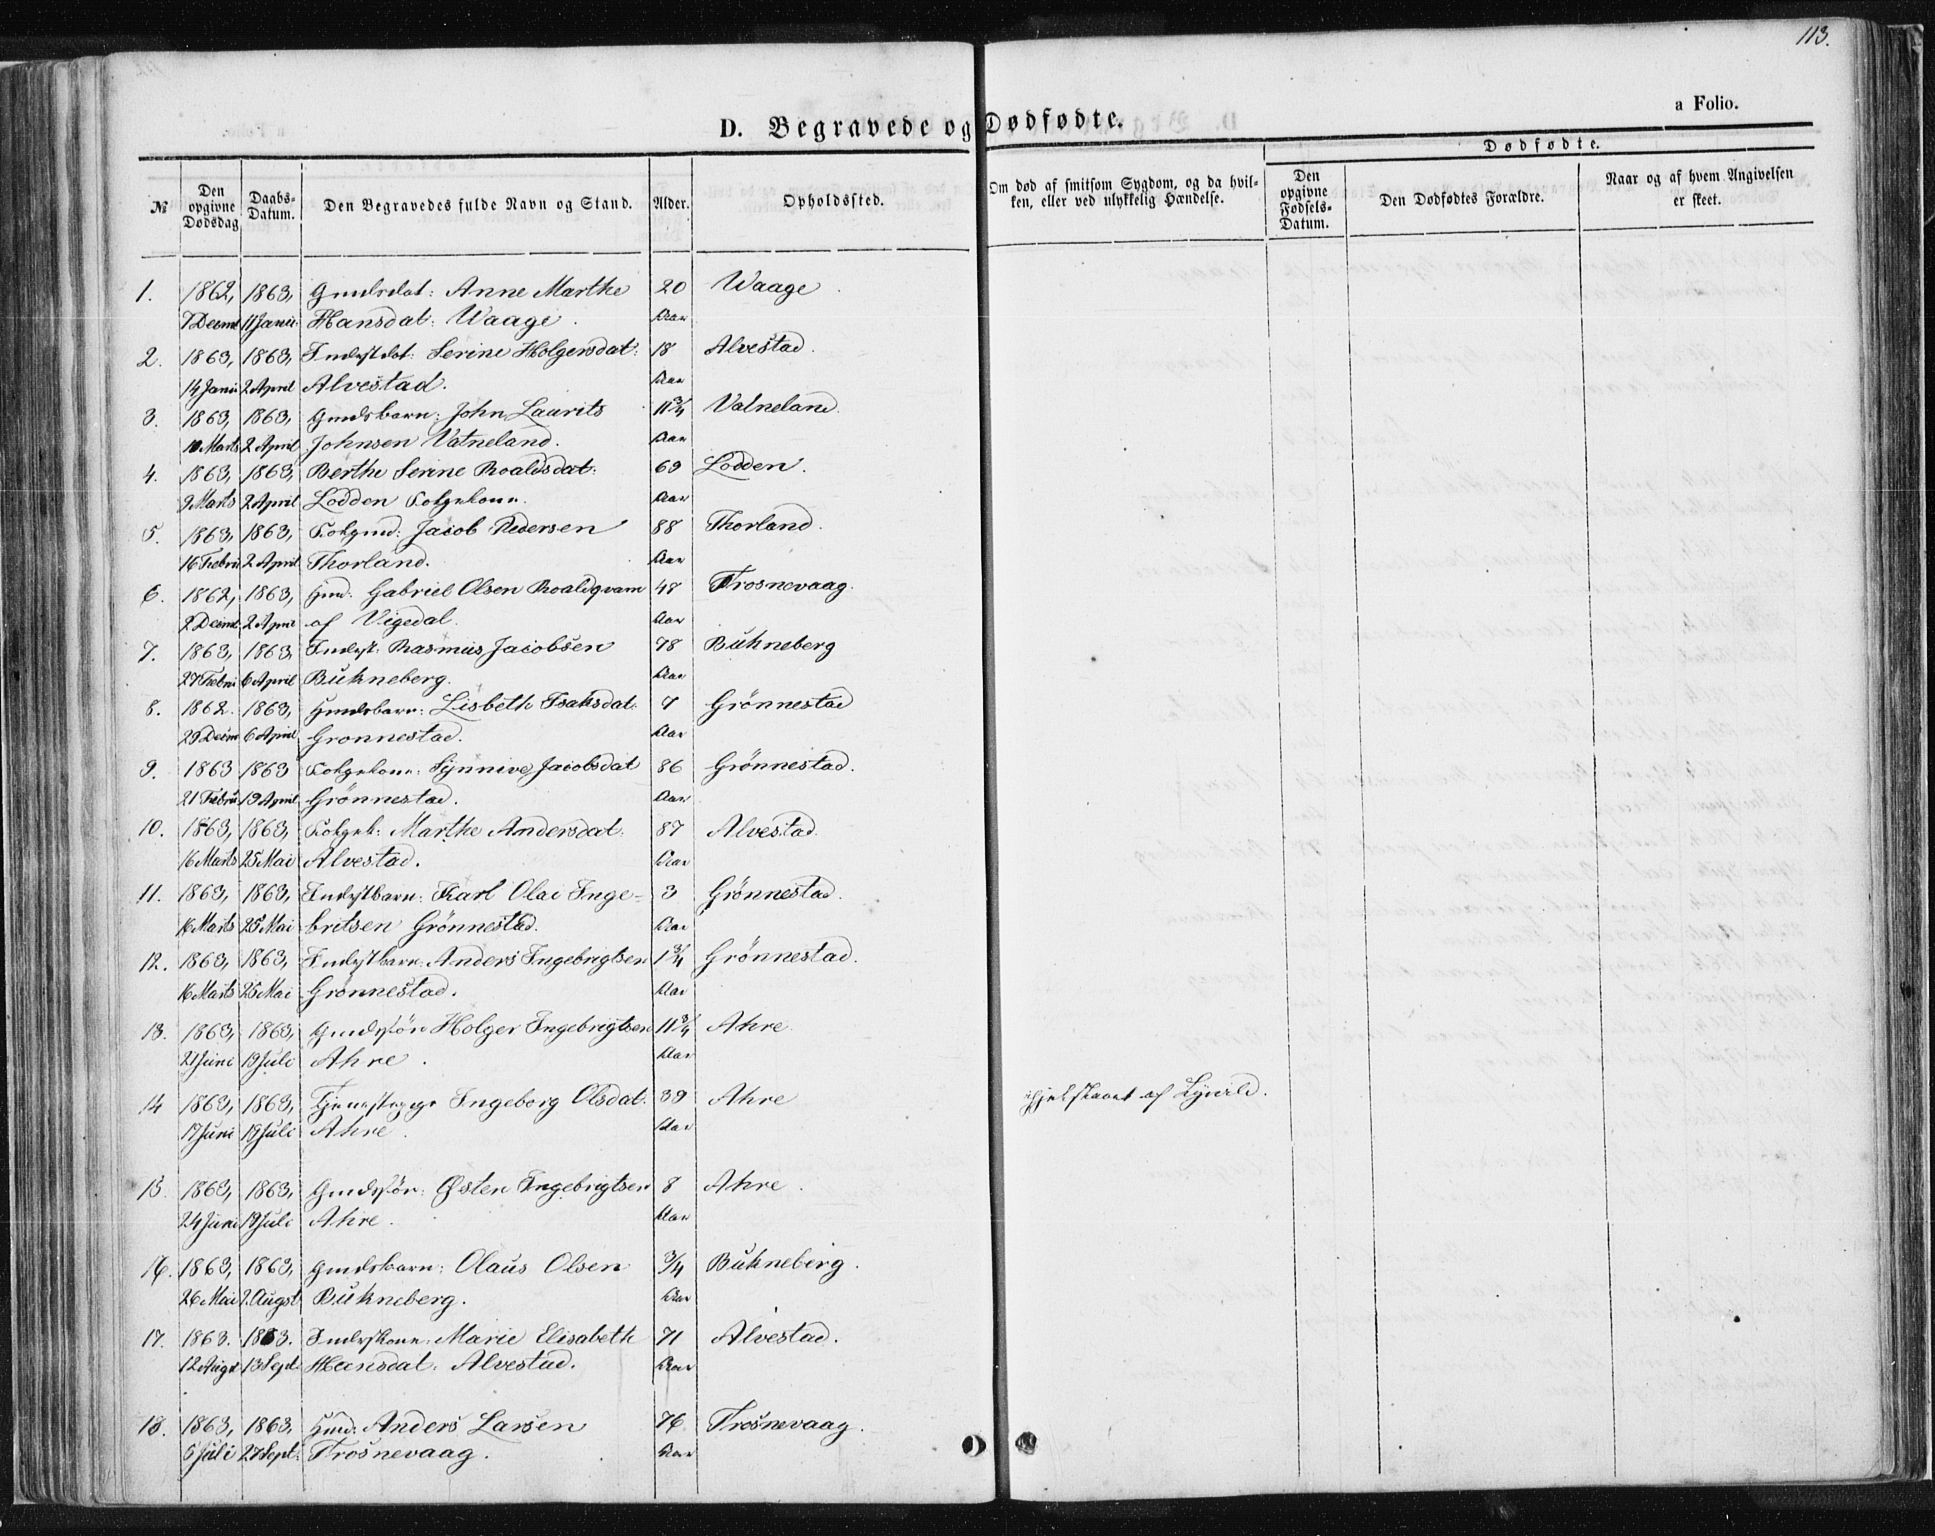 113.
a Folio.
D. Begravede og Dødfødte.
Dødfødte.
№ Den opgivne Dødsdag Daabs-Datum. Den Begravedes fulde Navn og Stand. Alder. Opholdssted. Om død af smitsom Sygdom, og da hvilken, eller ved ulykkelig Hændelse. Den opgivne Fødsels-Datum. Den Dødfødtes Forældre. Naar og af hvem Angivelsen er skeet.
1. 1862, 1863, Gmdsdat: Anne Marthe 20 Waage
7 Decmb 11 Janu: Hansdat: Waage. Aar
2. 1863, 1863, Indrstdat: Serine Holgersdat: 18 Alvestad.
14 Janu 2 April Alvestad. Aar
3. 1863, 1863, Gmdsbarn: John Laurits 11 3/4 Vatneland.
10 Marts 2 April Johnsen Vatneland. Aar
4. 1863, 1863, Berthe Serine Roaldsdat: 69 Lodden.
9 Marts 2 April Lodden Folgekone. Aar
5. 1863, 1863, Folgmd: Jacob Pedersen 88 Thorland.
16 Febru 2 April Thorland. Aar
6. 1862, 1863, Hmd: Gabriel Olsen Roaldqvam 48 Trosnevaag.
2 Decmb 2 April af Vigedal. Aar
7. 1863, 1863, Indrst: Rasmus Jacobsen 78 Bukneberg
27 Febru 6 April Bukneberg. Aar
8. 1862. 1863, Hmdsbarn: Lisbeth Isaksdat: 7 Grönnestad
29 Decm 6 April Gronnestad. Aar
9. 1863 1863 Folgekone: Synnive Jacobsdat 86 Grönnestad.
21 Febru 19 April Grönnestad. Aar
10. 1863, 1863, Folgek: Marthe Andersdat: 87 Alvestad.
16 Marts 25 Mai Alvestad. Aar
11. 1863, 1863, Indrstbarn: Karl Olai Inge- 3 Grönnestad.
16 Marts 25 Mai britsen Grönnestad. Aar
12. 1863, 1863, Indrstbarn: Anders Ingebrigtsen 1 3/4 Grönnestad.
16 Marts 25 Mai Grönnestad. Aar
13. 1863, 1863, Gmdssön Holger Ingebrigtsen 11 3/4 Ahre.
21 Juni 19 Juli Ahre. Aar
14 1863, 1863, Tjenestepige Ingeborg Olsdat: 39 Ahre ihjelslaaet af Lynild.
17 Juni 19 Juli Ahre. Aar
15. 1863, 1863, Gmdssön: Østen Ingebrigtsen 8 Ahre.
24 Juni 19 Juli Ahre. Aar
16. 1863, 1863, Gmdsbarn: Olaus Olsen 3/4 Bukneberg.
26 Mai 2. Augst Bukneberg. Aar
17. 1863. 1863. Indrstkone: Marie Elisabeth 71 Alvestad.
12 Augst 13 Sept: Hansdat: Alvestad. Aar
18. 1863, 1863, Hmd: Anders Larsen 76 Trosnevaag.
6 Juli 27 Sept: Trosnevaag. Aar